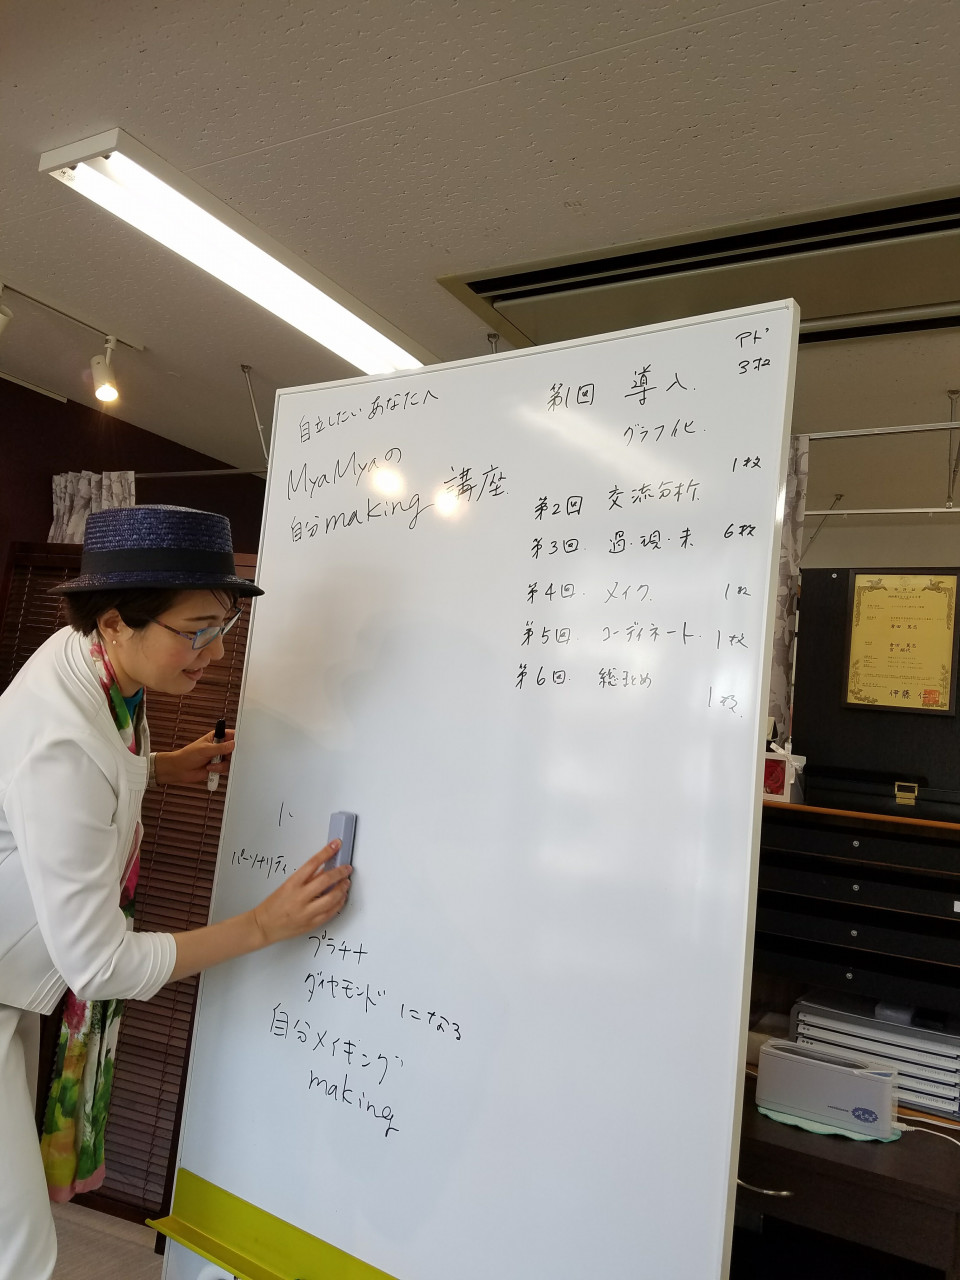 自立したいあなたへ
MyaMyaの
自分making講座.
アド
3枚
第1回 導入.
グラフ化.
1枚
第2回 交流分析.
第3回. 過・現・未 6枚
第4回. メイク. 1枚
第5回. コーディネート. 1枚
第6回. 総まとめ
1枚.
パーソナリティー
プラチナ
ダイヤモンドになる
自分メイキング
making
伊藤